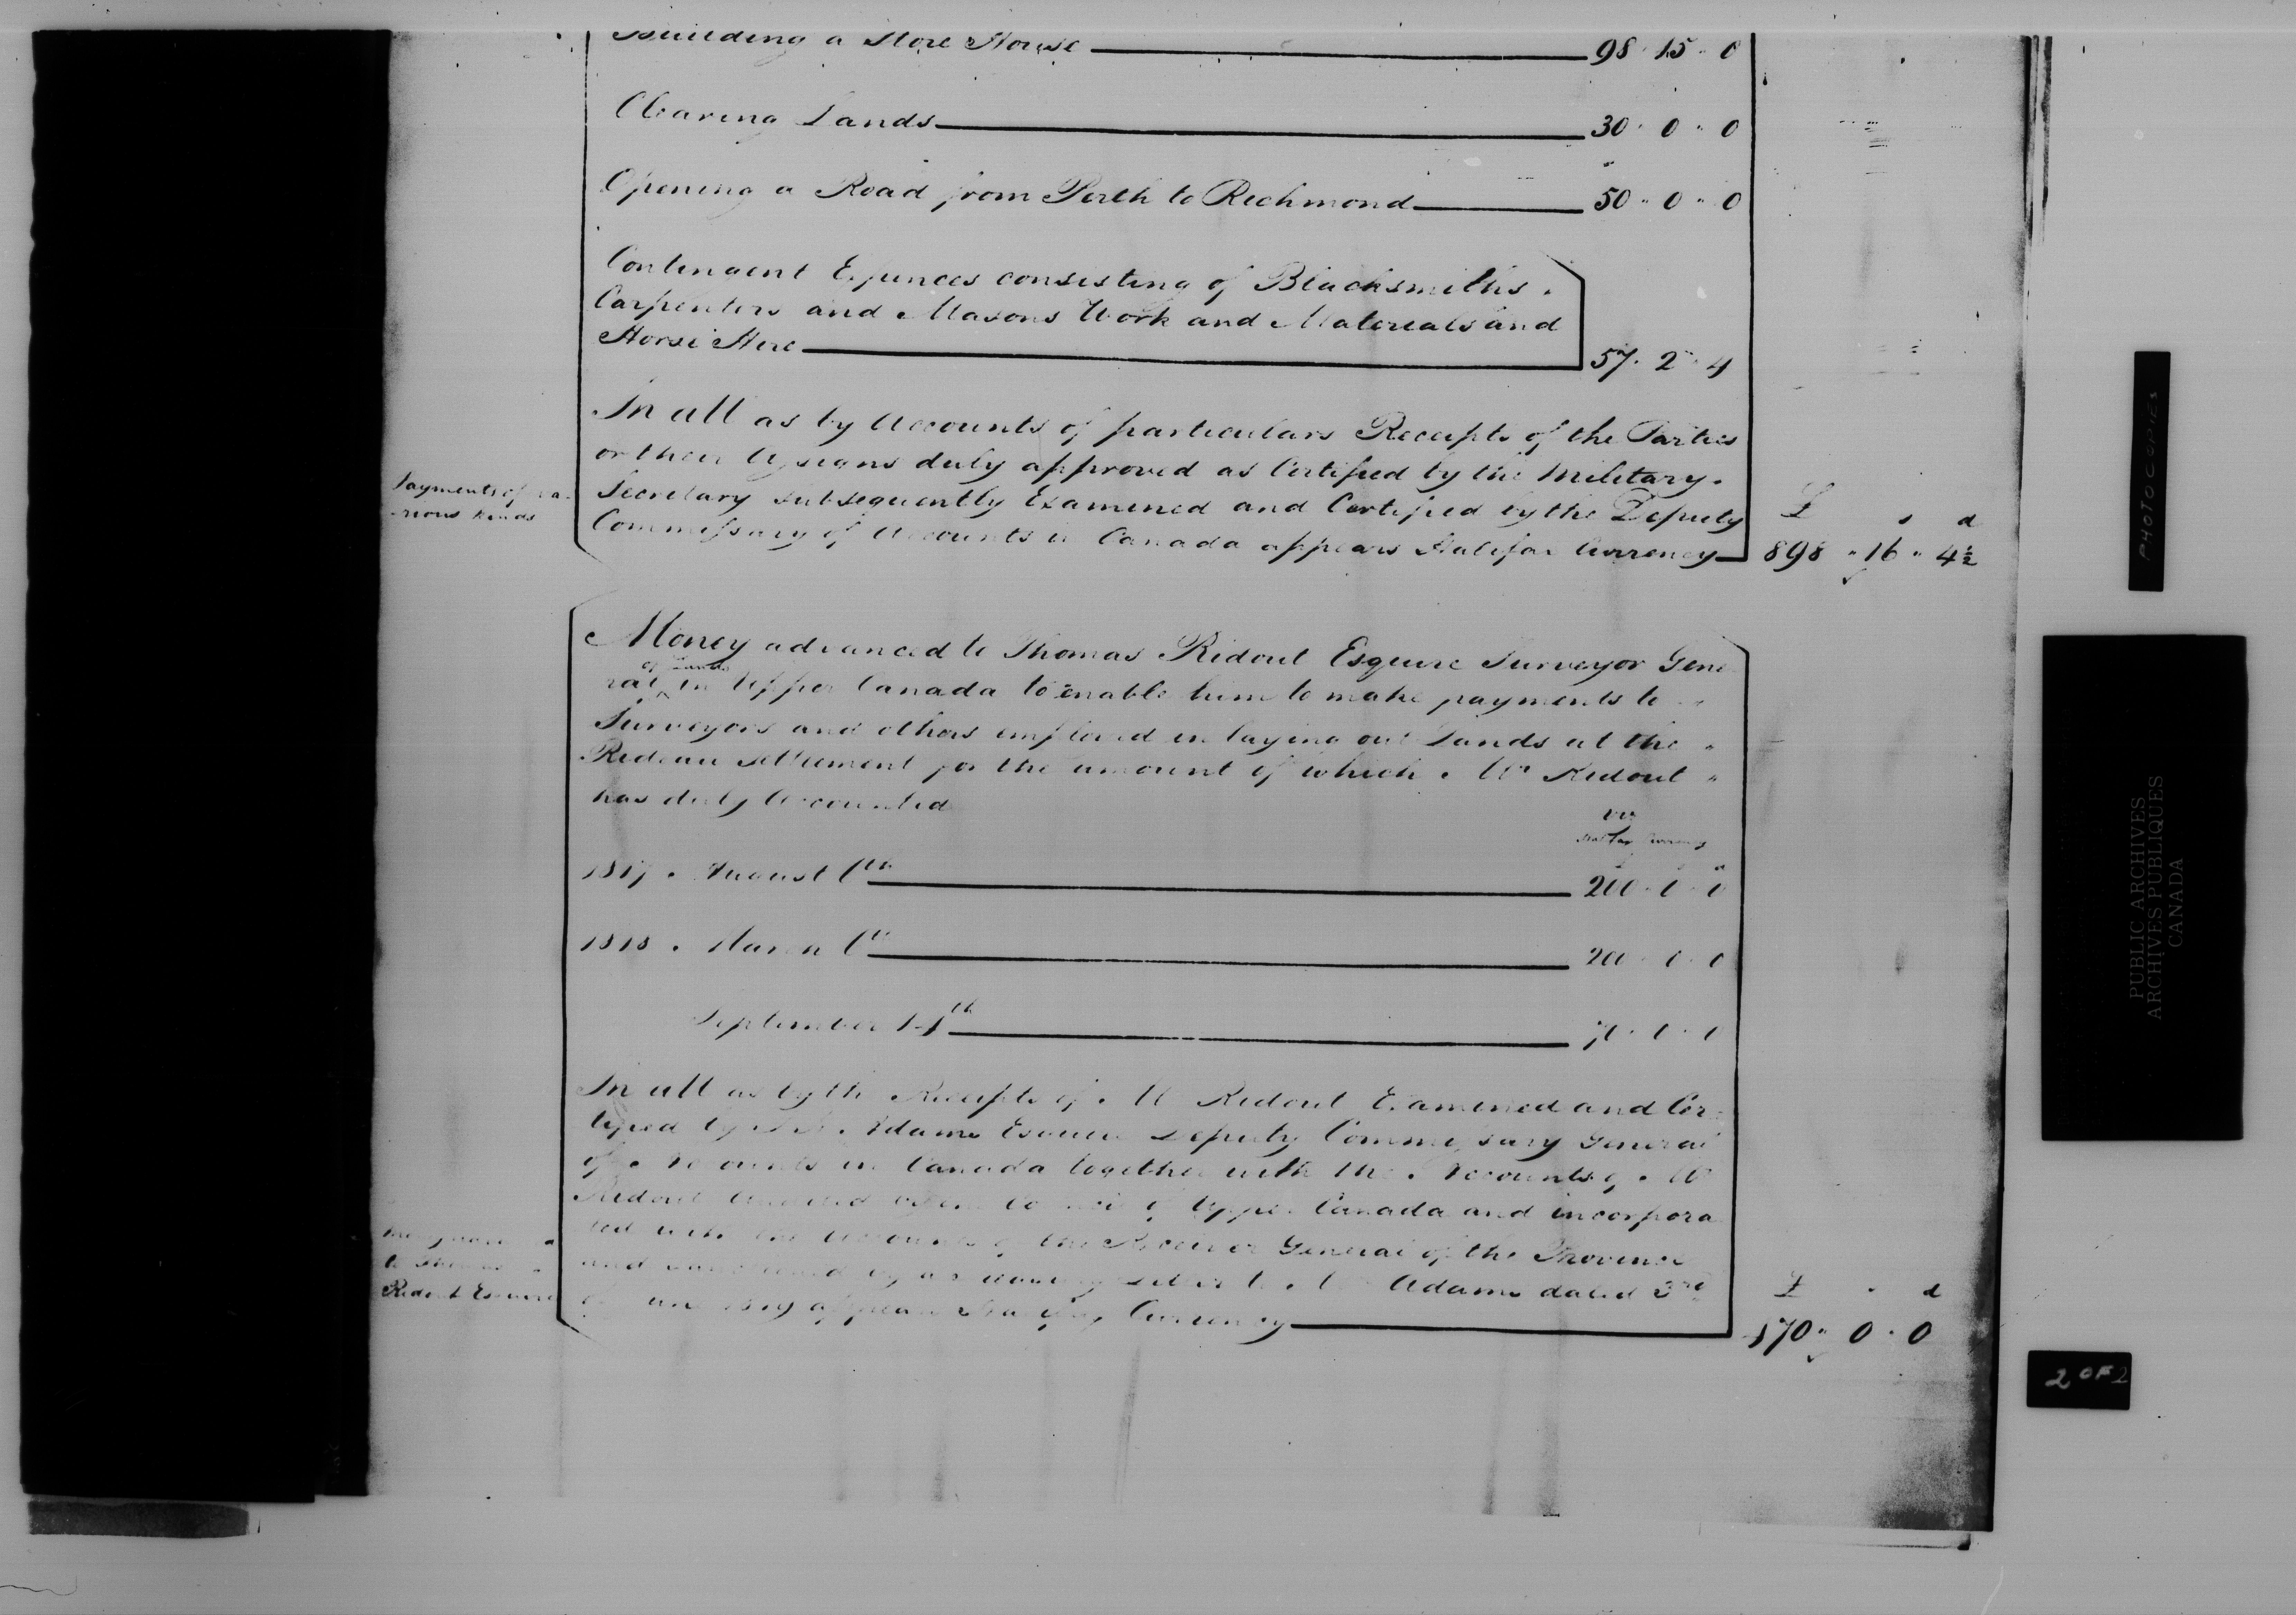 Building a Store House 98 " 15 " 0
Clearing Lands 30 " 0 " 0
Opening a Road from Perth to Richmond 50 " 0 " 0
Contingent Expences consisting of Blacksmiths,
Carpenters and Masons Work and Materials and
Horse Hire 57 " 2 " 4
In all as by Accounts of particulars Receipts of the Parties
or their Assigns duly approved as Certified by the Military
Secretary subsequently Examined and Certified by the Deputy
Commissary of Accounts in Canada appears Halifax Currency
Payments of va-
rious kinds
£ s d
898 " 16 " 4½
Money advanced to Thomas Ridout Esquire Surveyor Gene
ral of Lands in Upper Canada to enable him to make payments to
Surveyors and others employed in laying out Lands at the
Rideau Settlement for the amount of which Mr Ridout
has duly Accounted
Halifax Currency
1817 . August 200 " 0 " 0
1818 . March 200 " 0 " 0
September 70 " 0 " 0
In all as by the Receipts of Mr Ridout Examined and Cer
tified by Adams Esquire Deputy Commissary General
of Accounts in Canada together with the Accounts of Mr
Ridout of Upper Canada and incorpora
ted with the Accounts of the Receiver General of the Province
and by Letter to Adams dated 3rd
1819 appears Halifax Currency
to Thomas
Ridout Esquire
£ d
470 " 0 " 0
PHOTOCOPIES
PUBLIC ARCHIVES
ARCHIVES PUBLIQUES
CANADA
2 OF 2